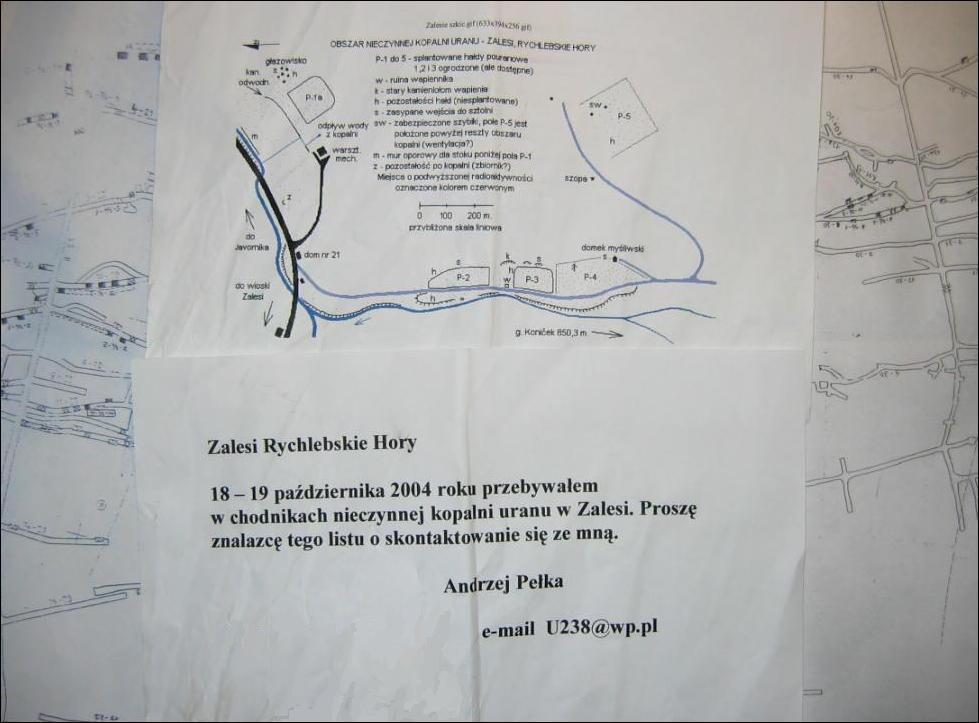 Zalesie szkic.gif (633x394x256 gif)
OBSZAR NIECZYNNEJ KOPALNI URANU - ZALESI, RYCHLEBSKIE HORY
P-1 do 5 - splantowane hałdy pouranowe
1,2 i 3 ogrodzone (ale dostępne)
w - ruina wapiennika
k - stary kamieniołom wapienia
h - pozostałości hałd (niesplantowane)
s - zasypane wejścia do sztolni
sw - zabezpieczone szybiki, pole P-5 jest
położone powyżej reszty obszaru
kopalni (wentylacja?)
m - mur oporowy dla stoku poniżej pola P-1
z - pozostałość po kopalni (zbiornik?)
Miejsca o podwyższonej radioaktywności
oznaczone kolorem czerwonym
0 100 200 m.
przybliżona skala liniowa
głazowisko
s h
kan.
odwodn.
P-1a
odpływ wody
z kopalni
warszt.
mech.
m
z
do
Javornika
dom nr 21
do wioski
Zalesi
sw
P-5
h
szopa
domek myśliwski
s
h s
P-2
k s
h
w
P-3
P-4
h
g. Koniček 850,3 m
Zalesi Rychlebskie Hory
18 – 19 października 2004 roku przebywałem
w chodnikach nieczynnej kopalni uranu w Zalesi. Proszę
znalazcę tego listu o skontaktowanie się ze mną.
Andrzej Pełka
e-mail U238@wp.pl